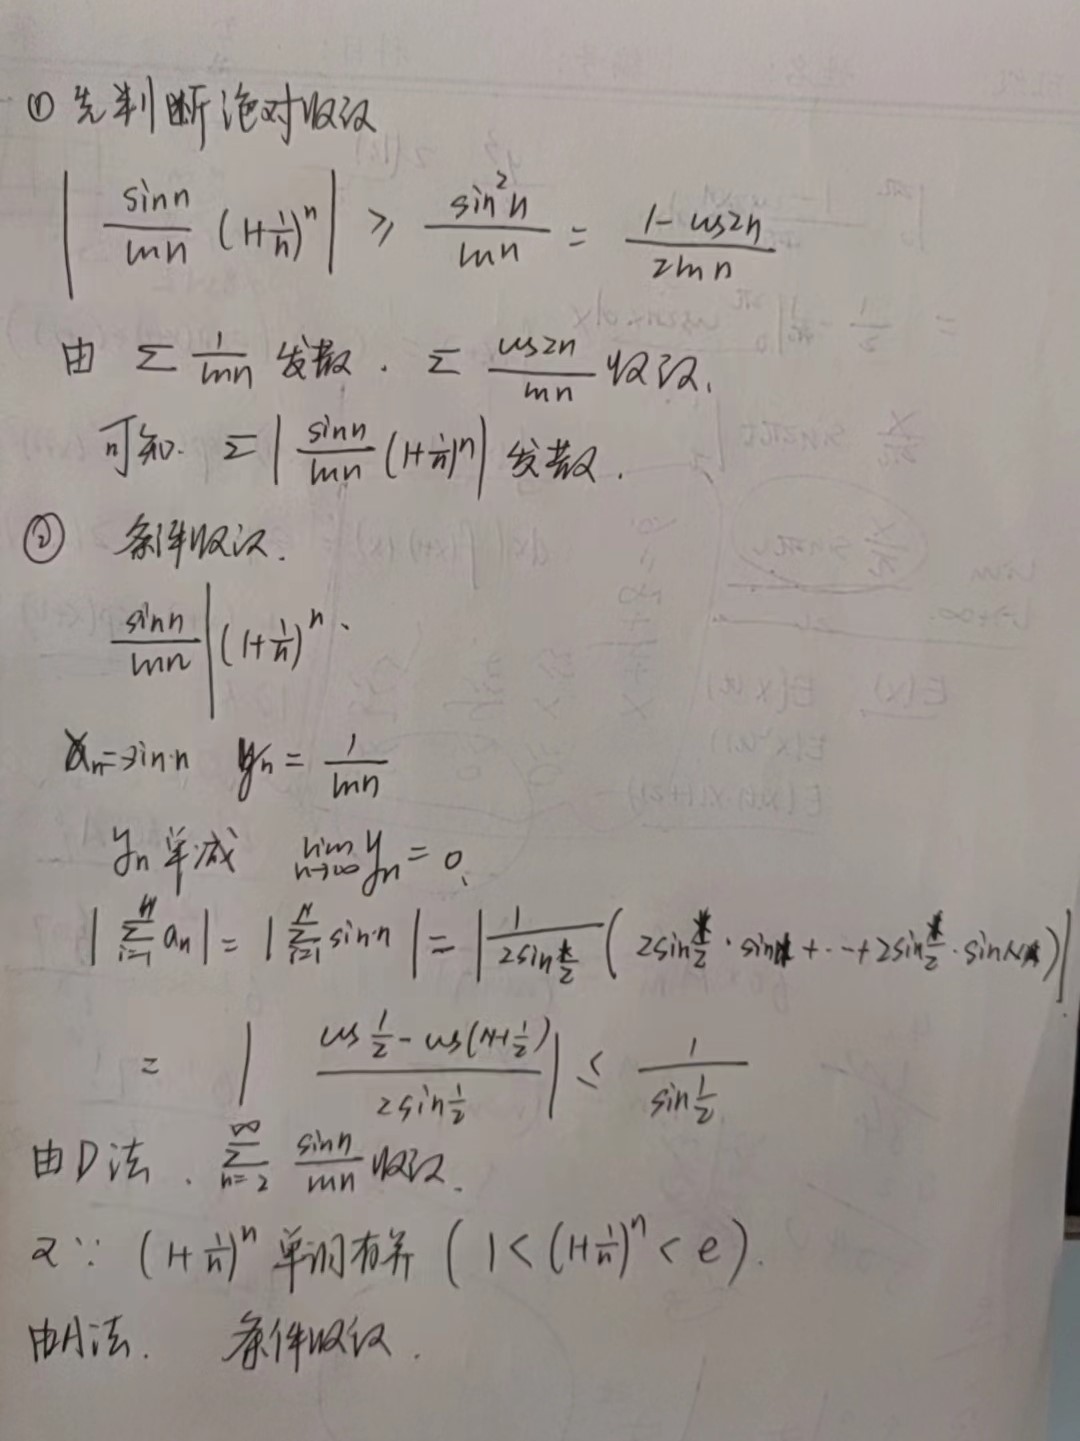 ① 先判断绝对收敛
| sin n / ln n (1+1/n)^n | ≥ sin²n / ln n = 1-cos2n / 2ln n
由 Σ 1/ln n 发散. Σ cos2n / ln n 收敛.
可知. Σ| sin n / ln n (1+1/n)^n | 发散.
② 条件收敛.
sin n / ln n | (1+1/n)^n.
a_n = sin n y_n = 1/ln n
y_n 单减 lim n→∞ y_n = 0.
| Σ i=1 N a_n | = | Σ i=1 N sin n | = | 1 / 2sin 1/2 ( 2sin 1/2 · sin 1 + ··· + 2sin 1/2 · sin N ) |
= | cos 1/2 - cos(N+1/2) / 2sin 1/2 | ≤ 1 / sin 1/2
由D法. Σ n=2 ∞ sin n / ln n 收敛.
又∵ (1+1/n)^n 单调有界 ( 1 < (1+1/n)^n < e ).
由A法. 条件收敛.